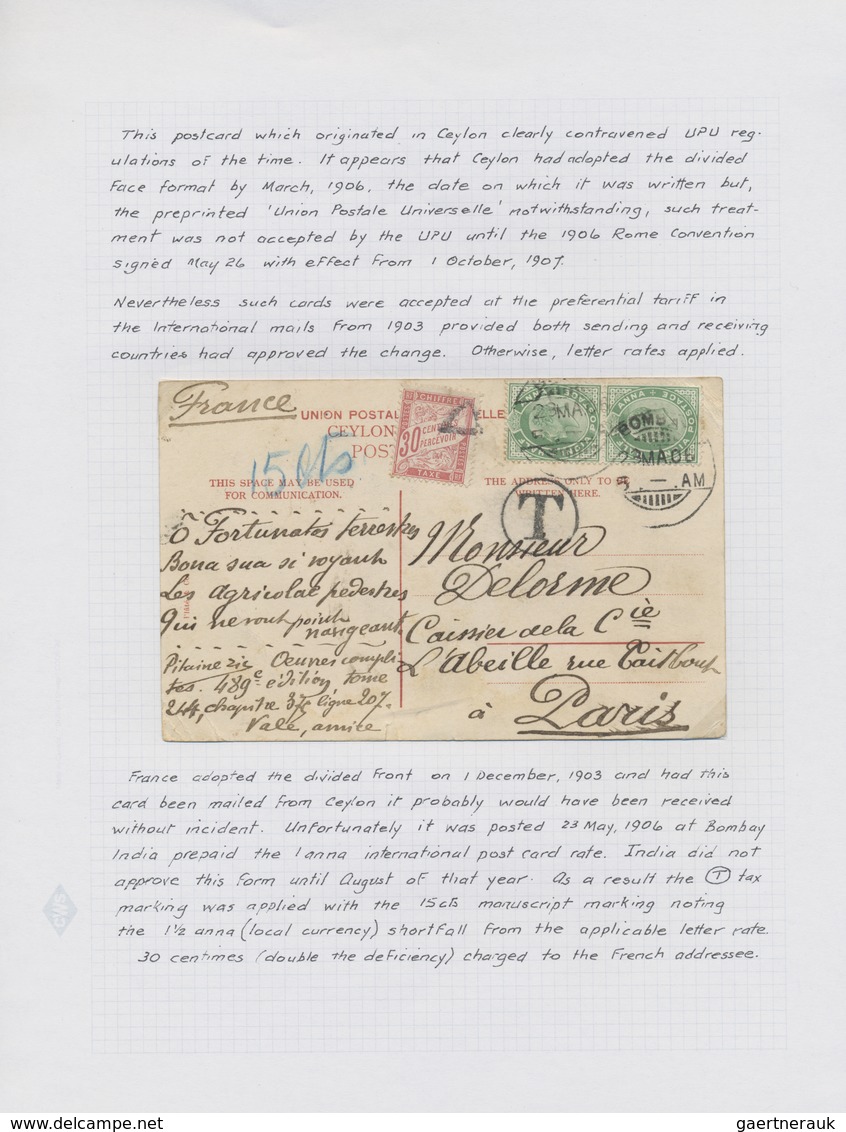 This postcard which originated in Ceylon clearly contravened UPU reg-
ulations of the time. It appears that Ceylon had adopted the divided
face format by March, 1906, the date on which it was written but,
the preprinted 'Union Postale Universelle' notwithstanding, such treat-
ment was not accepted by the UPU until the 1906 Rome Convention
signed May 26 with effect from 1 October, 1907.
Nevertheless such cards were accepted at the preferential tariff in
the International mails from 1903 provided both sending and receiving
countries had approved the change. Otherwise, letter rates applied.
France
UNION POSTAL ELLE
CEYLON
POST
CHIFFRE
30 CENT
PERCEVOIR
TAXE
23MA
ANNA
POSTAGE
BOMB
23MA06
AM
15 cts
THIS SPACE MAY BE USED
FOR COMMUNICATION.
THE ADDRESS ONLY TO BE
WRITTEN HERE.
T
O Fortunatos terrestres
Bona sua si voyant
Les agricolae pedestres
Qui ne vont point
navigeant
Oeuvres complè-
tes. 489e edition, tome
244, chapitre 37e ligne 207.
Vale, amice
Monsieur
Delorme
Caissier de la Cie
L'Abeille rue Taitbout
à Paris
France adopted the divided front on 1 December, 1903 and had this
card been mailed from Ceylon it probably would have been received
without incident. Unfortunately it was posted 23 May, 1906 at Bombay
India prepaid the 1 anna international post card rate. India did not
approve this form until August of that year. As a result the T tax
marking was applied with the 15cts manuscript marking noting
the 1½ anna (local currency) shortfall from the applicable letter rate.
30 centimes (double the deficiency) charged to the French addressee.
GWS
www.delcampe.net
gaertnerauk